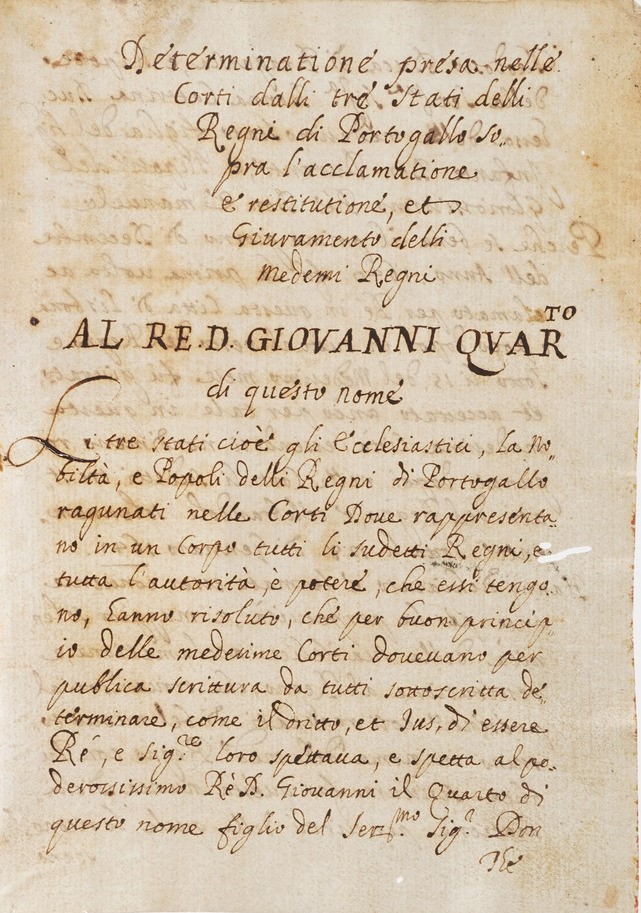 Determinatione presa nelle
Corti dalli tre Stati delli
Regni di Portogallo so„
pra l'acclamatione
e restitutione, et
Giuramento delli
medemi Regni
AL RE.D. GIOVANNI QVARTO
di questo nome
Li tre stati cioè gli Ecclesiastici, la No„
biltà, e Popoli delli Regni di Portogallo
ragunati nelle Corti Dove rappresenta„
no in un Corpo tutti li sudetti Regni, e
tutta l'autorità, è potere, che essi tengo„
no, hanno risoluto, che per buon princip„
io delle medesime Corti doveuano per
publica scrittura da tutti sottoscritta de„
terminare, come il dritto, et Jus, di essere
Ré, e Sig.re loro spettaua, e spetta al po„
derosissimo Rè D. Giovanni il Quarto di
questo nome figlio del Ser.mo Sig.r Don